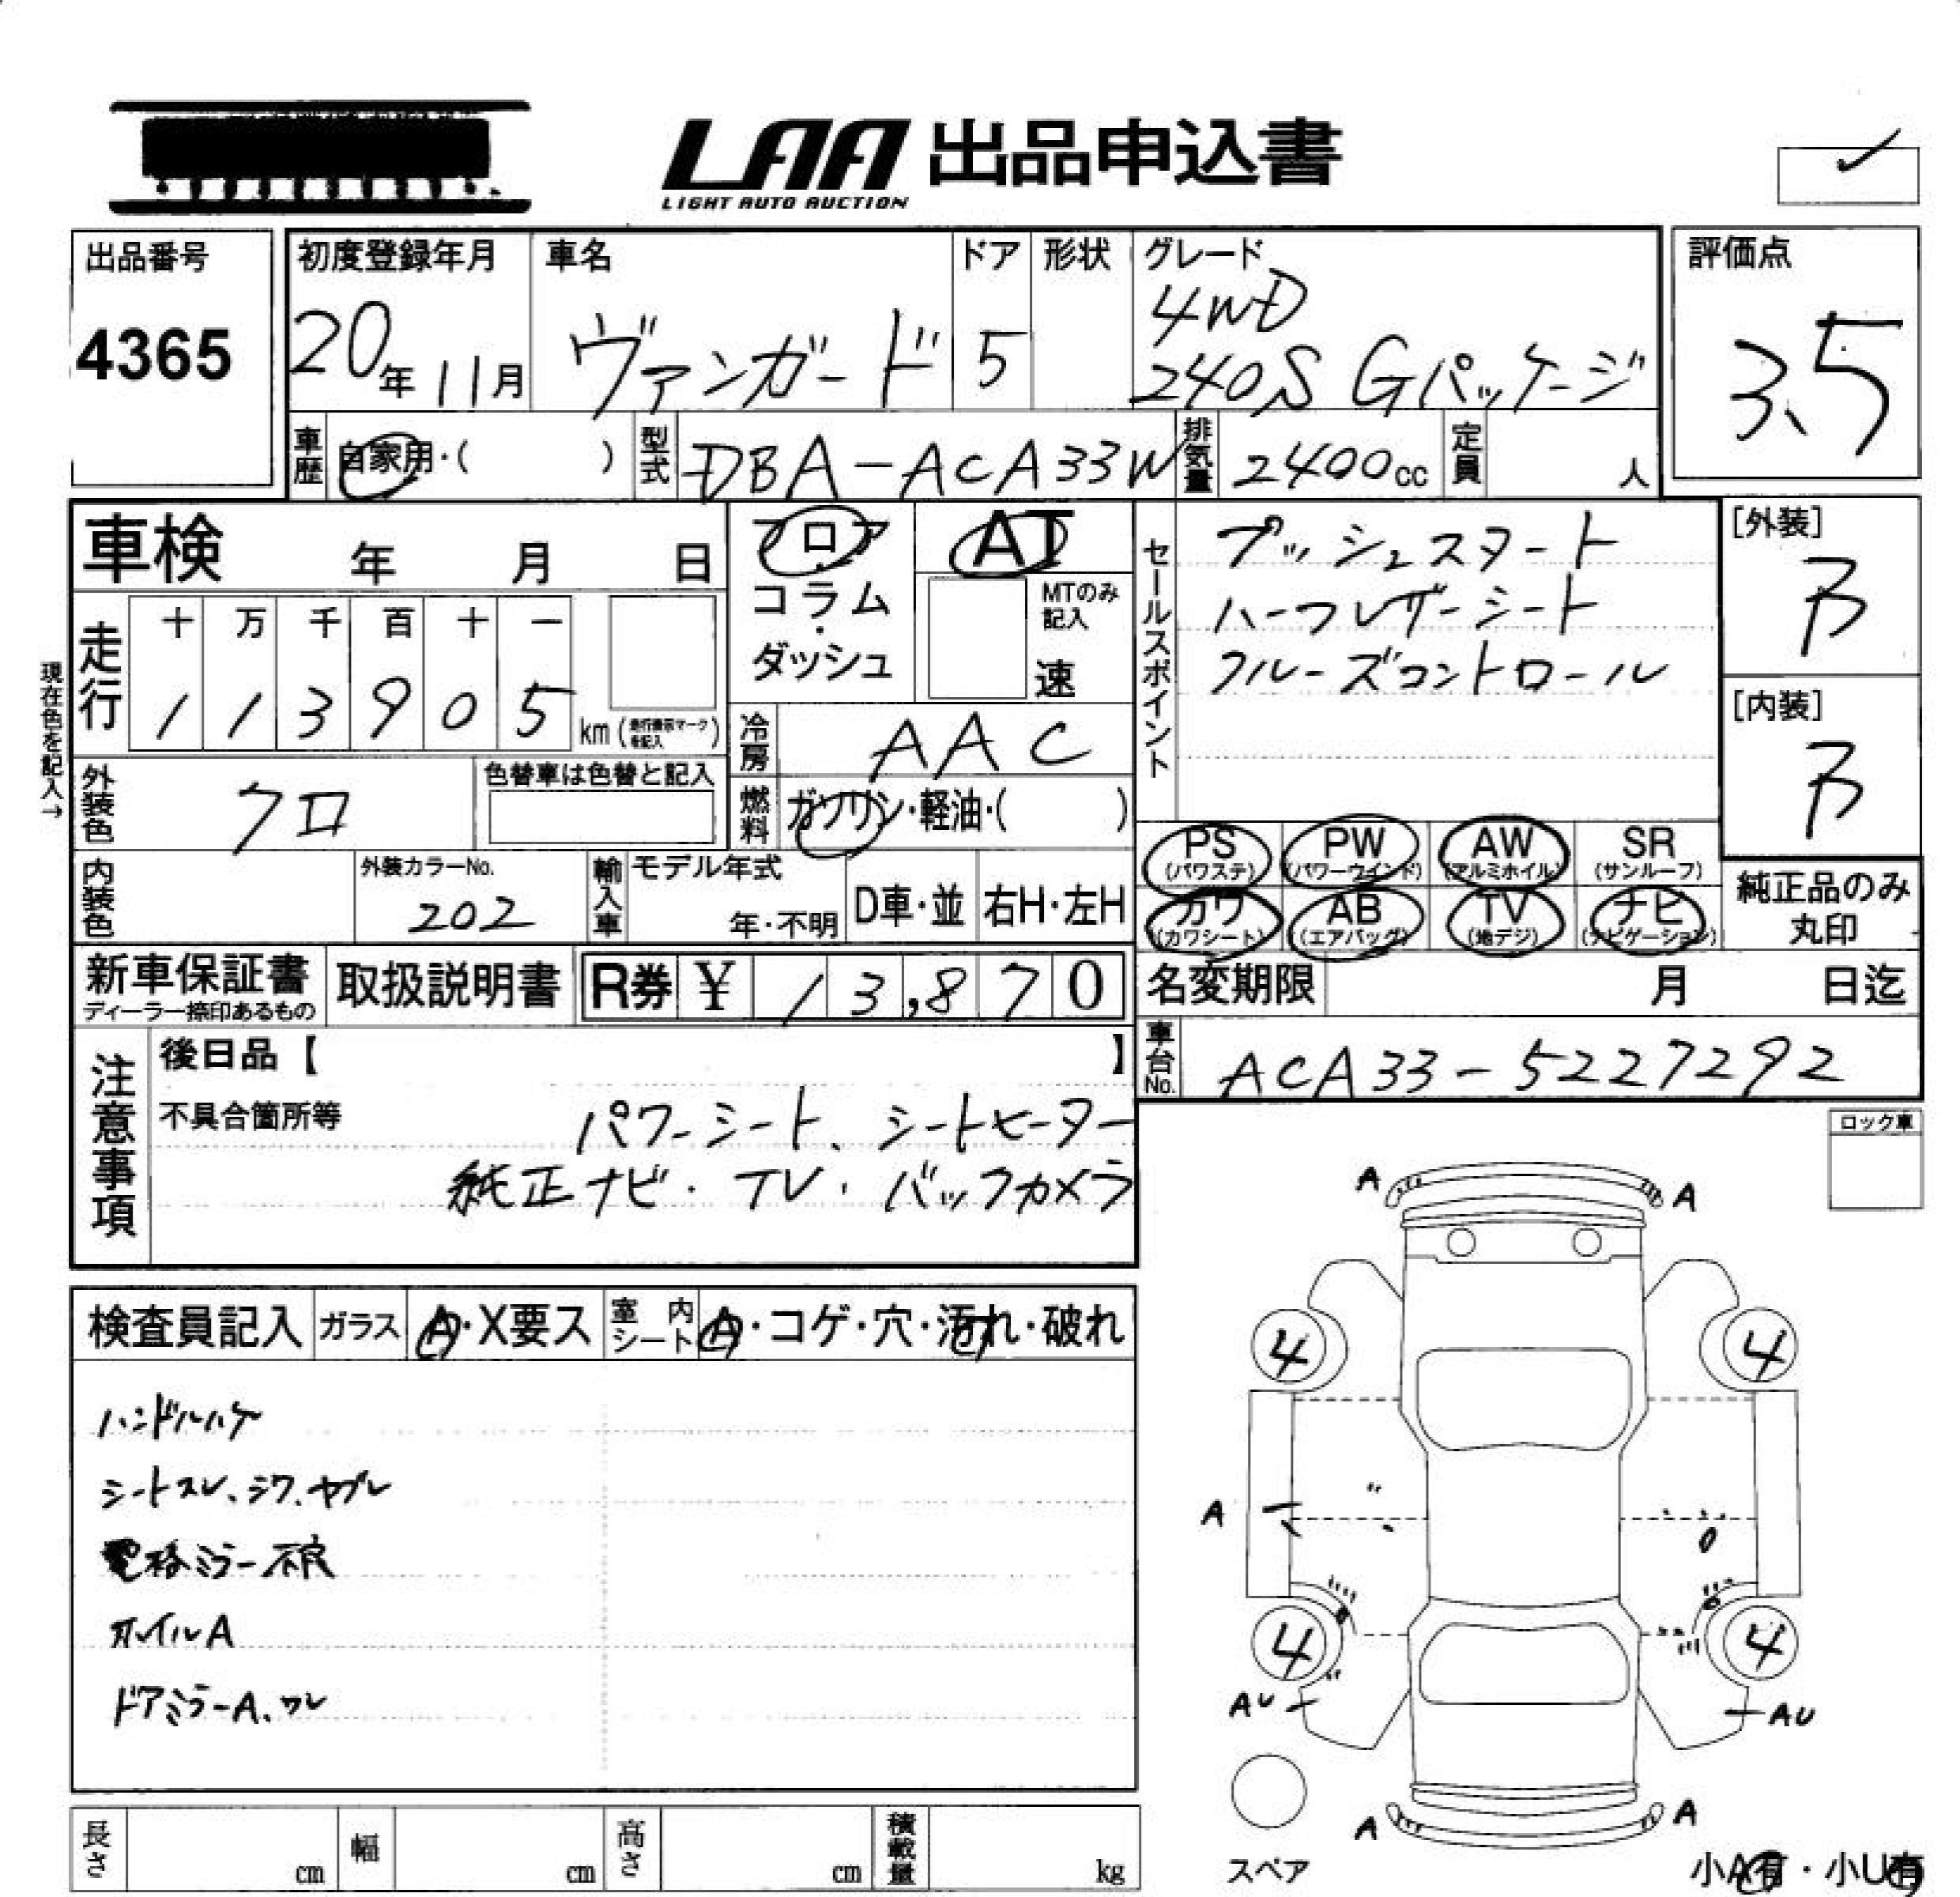 LAA 出品申込書
LIGHT AUTO AUCTION
出品番号
4365
初度登録年月
20年11月
車名
ヴァンガード
ドア
5
形状
グレード
4WD
240S Gパッケージ
評価点
3.5
車歴
自家用・( )
型式
DBA-ACA33W
排気量
2400cc
定員
人
車検 年 月 日
フロア
・
コラム
・
ダッシュ
AT
MTのみ
記入
速
セールスポイント
プッシュスタート
ハーフレザーシート
クルーズコントロール
[外装]
B
[内装]
B
現在色を記入→
走行
十 万 千 百 十 一
1 1 3 9 0 5 km (走行表示マークを記入)
冷房
AAC
外装色
クロ
色替車は色替と記入
燃料
ガソリン・軽油・( )
内装色
外装カラーNo.
202
輸入車
モデル年式
年・不明
D車・並
右H・左H
PS (パワステ) PW (パワーウインド) AW (アルミホイル) SR (サンルーフ)
カワ (カワシート) AB (エアバッグ) TV (地デジ) ナビ (ナビゲーション)
純正品のみ
丸印
新車保証書
ディーラー捺印あるもの
取扱説明書
R券 ¥ 13,870
名変期限 月 日迄
車台No.
ACA33-5227292
注意事項
後日品【 】
不具合箇所等
パワーシート、シートヒーター
純正ナビ・TV・バックカメラ
ロック車
検査員記入
ガラス
A・X要ス
室内シート
A・コゲ・穴・汚れ・破れ
ハンドルハゲ
シートスレ、シワ、ヤブレ
電格ミラー不良
ホイルA
ドアミラーA、ワレ
A A
4 4
A
4 4
AU AU
A A
スペア
小A有・小U有
長さ cm
幅 cm
高さ cm
積載量 kg